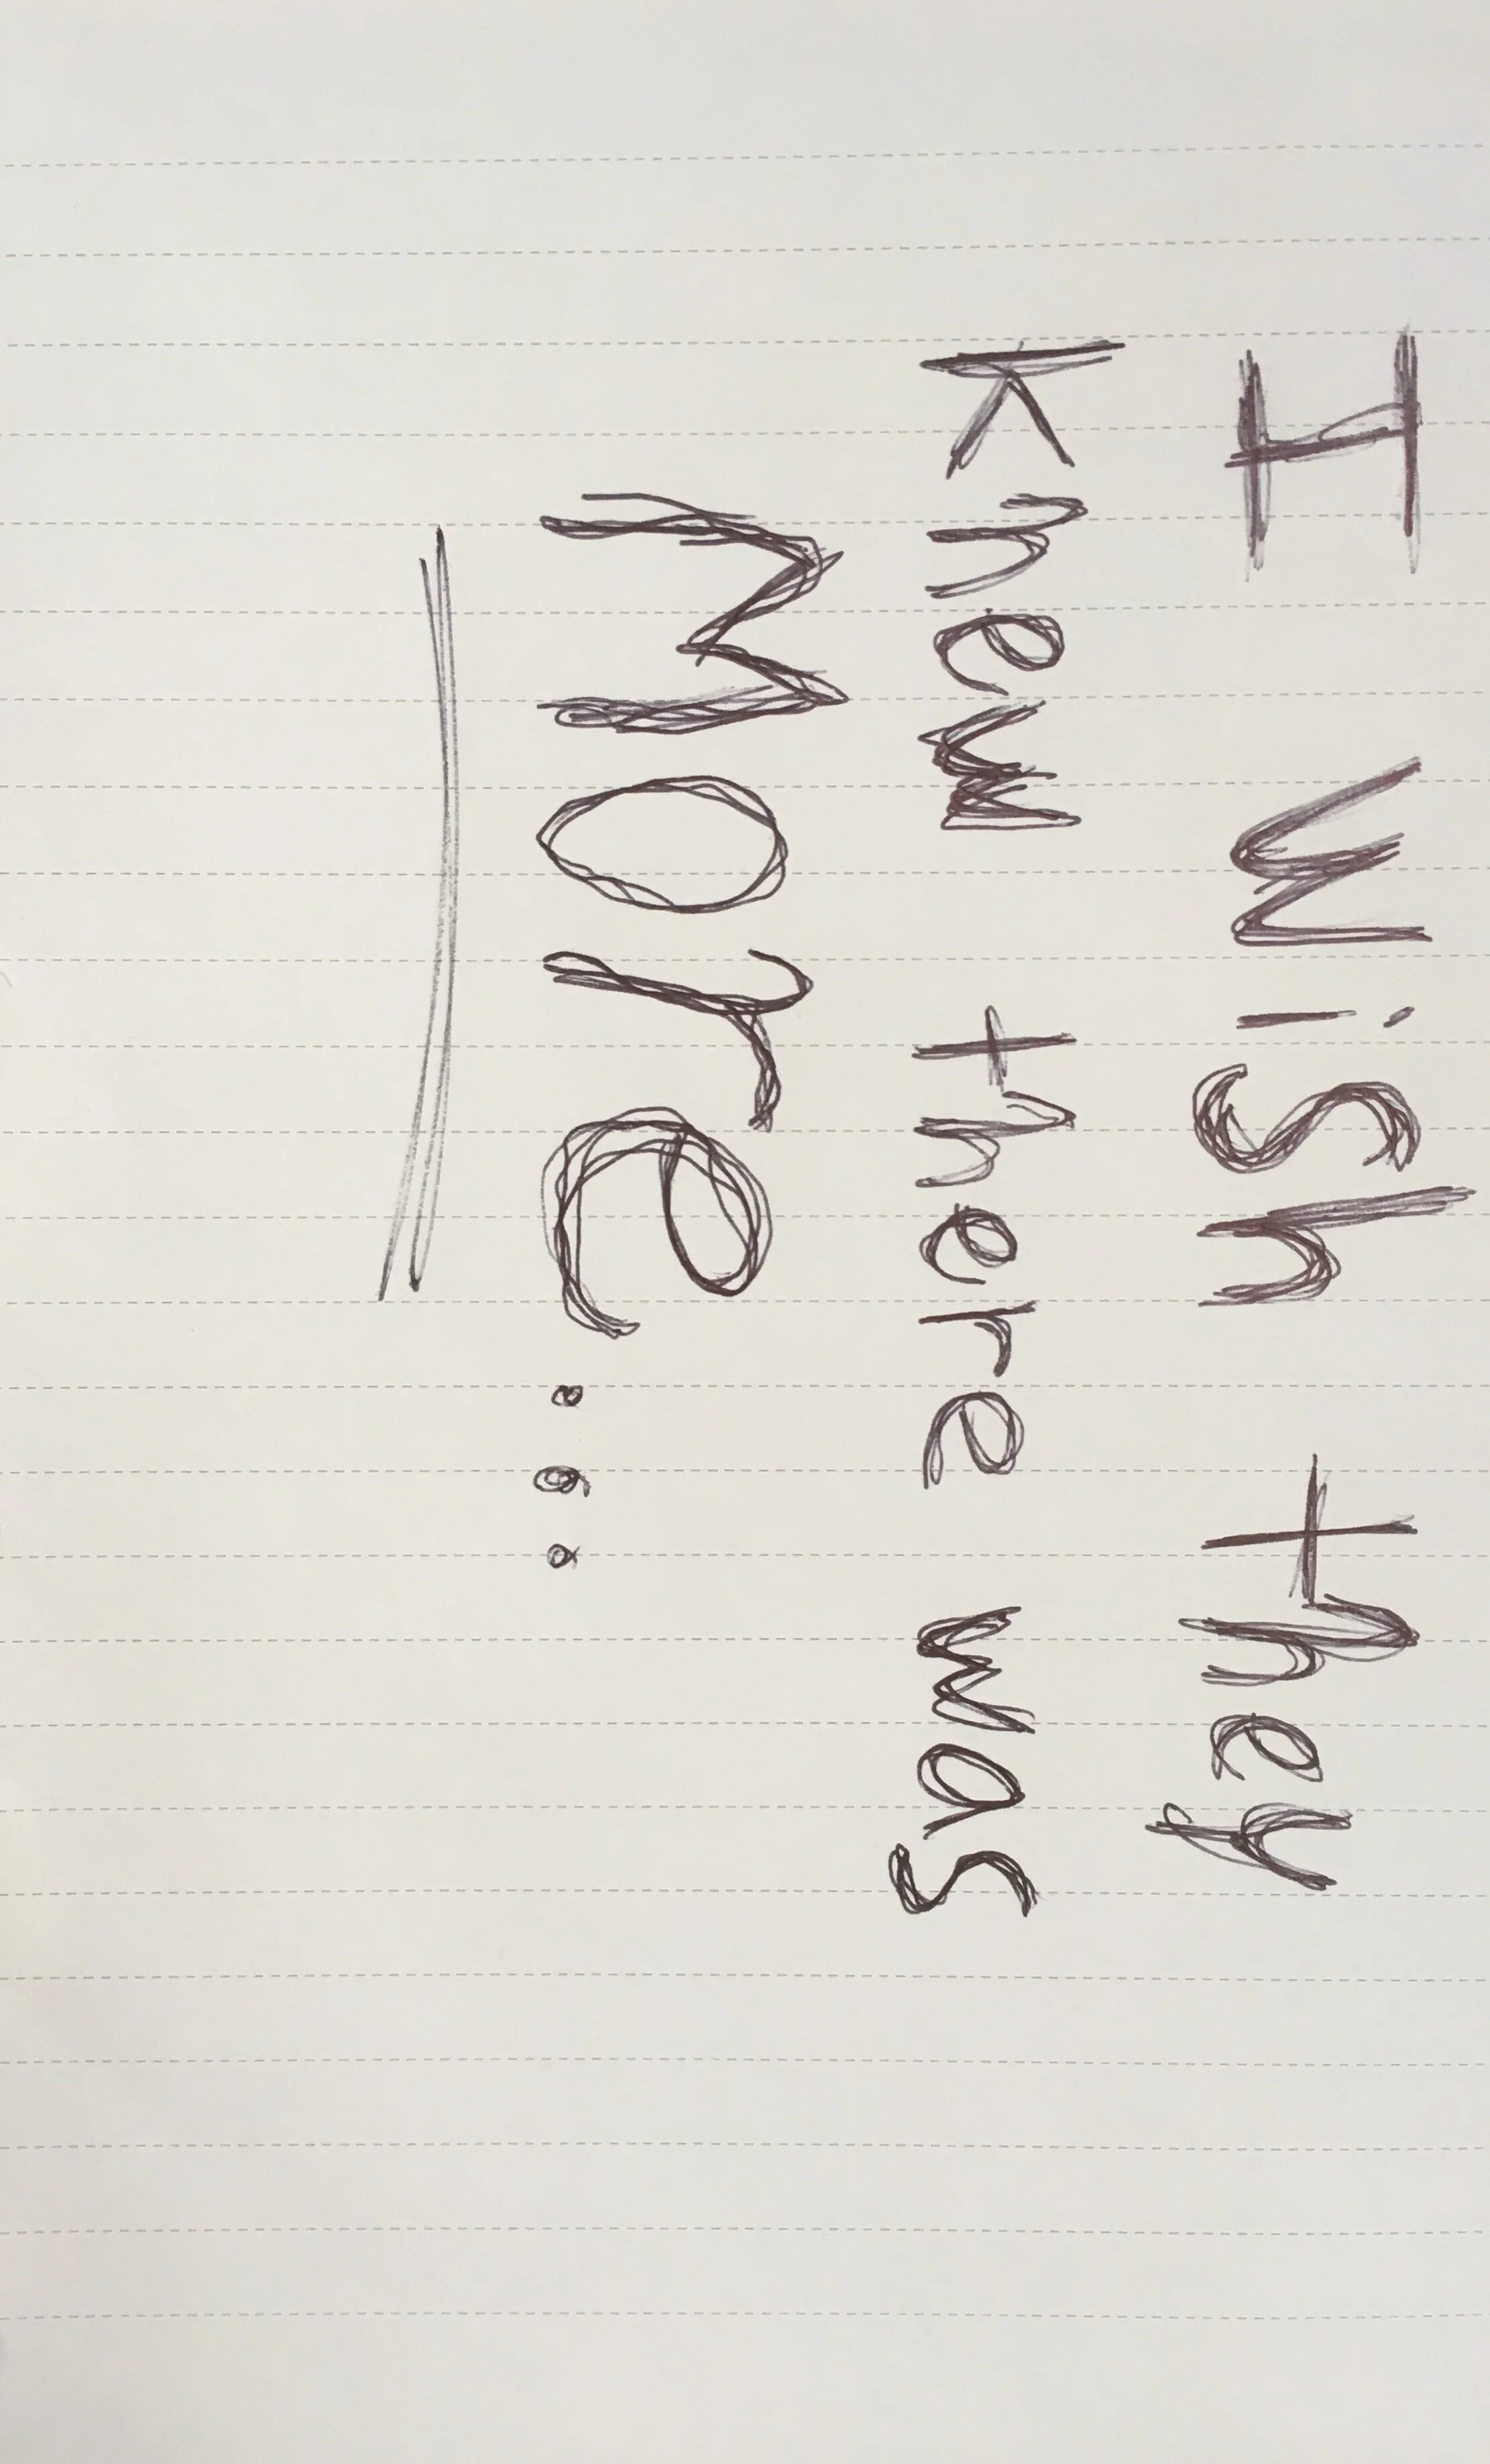 I Wish they
Knew there was
More...